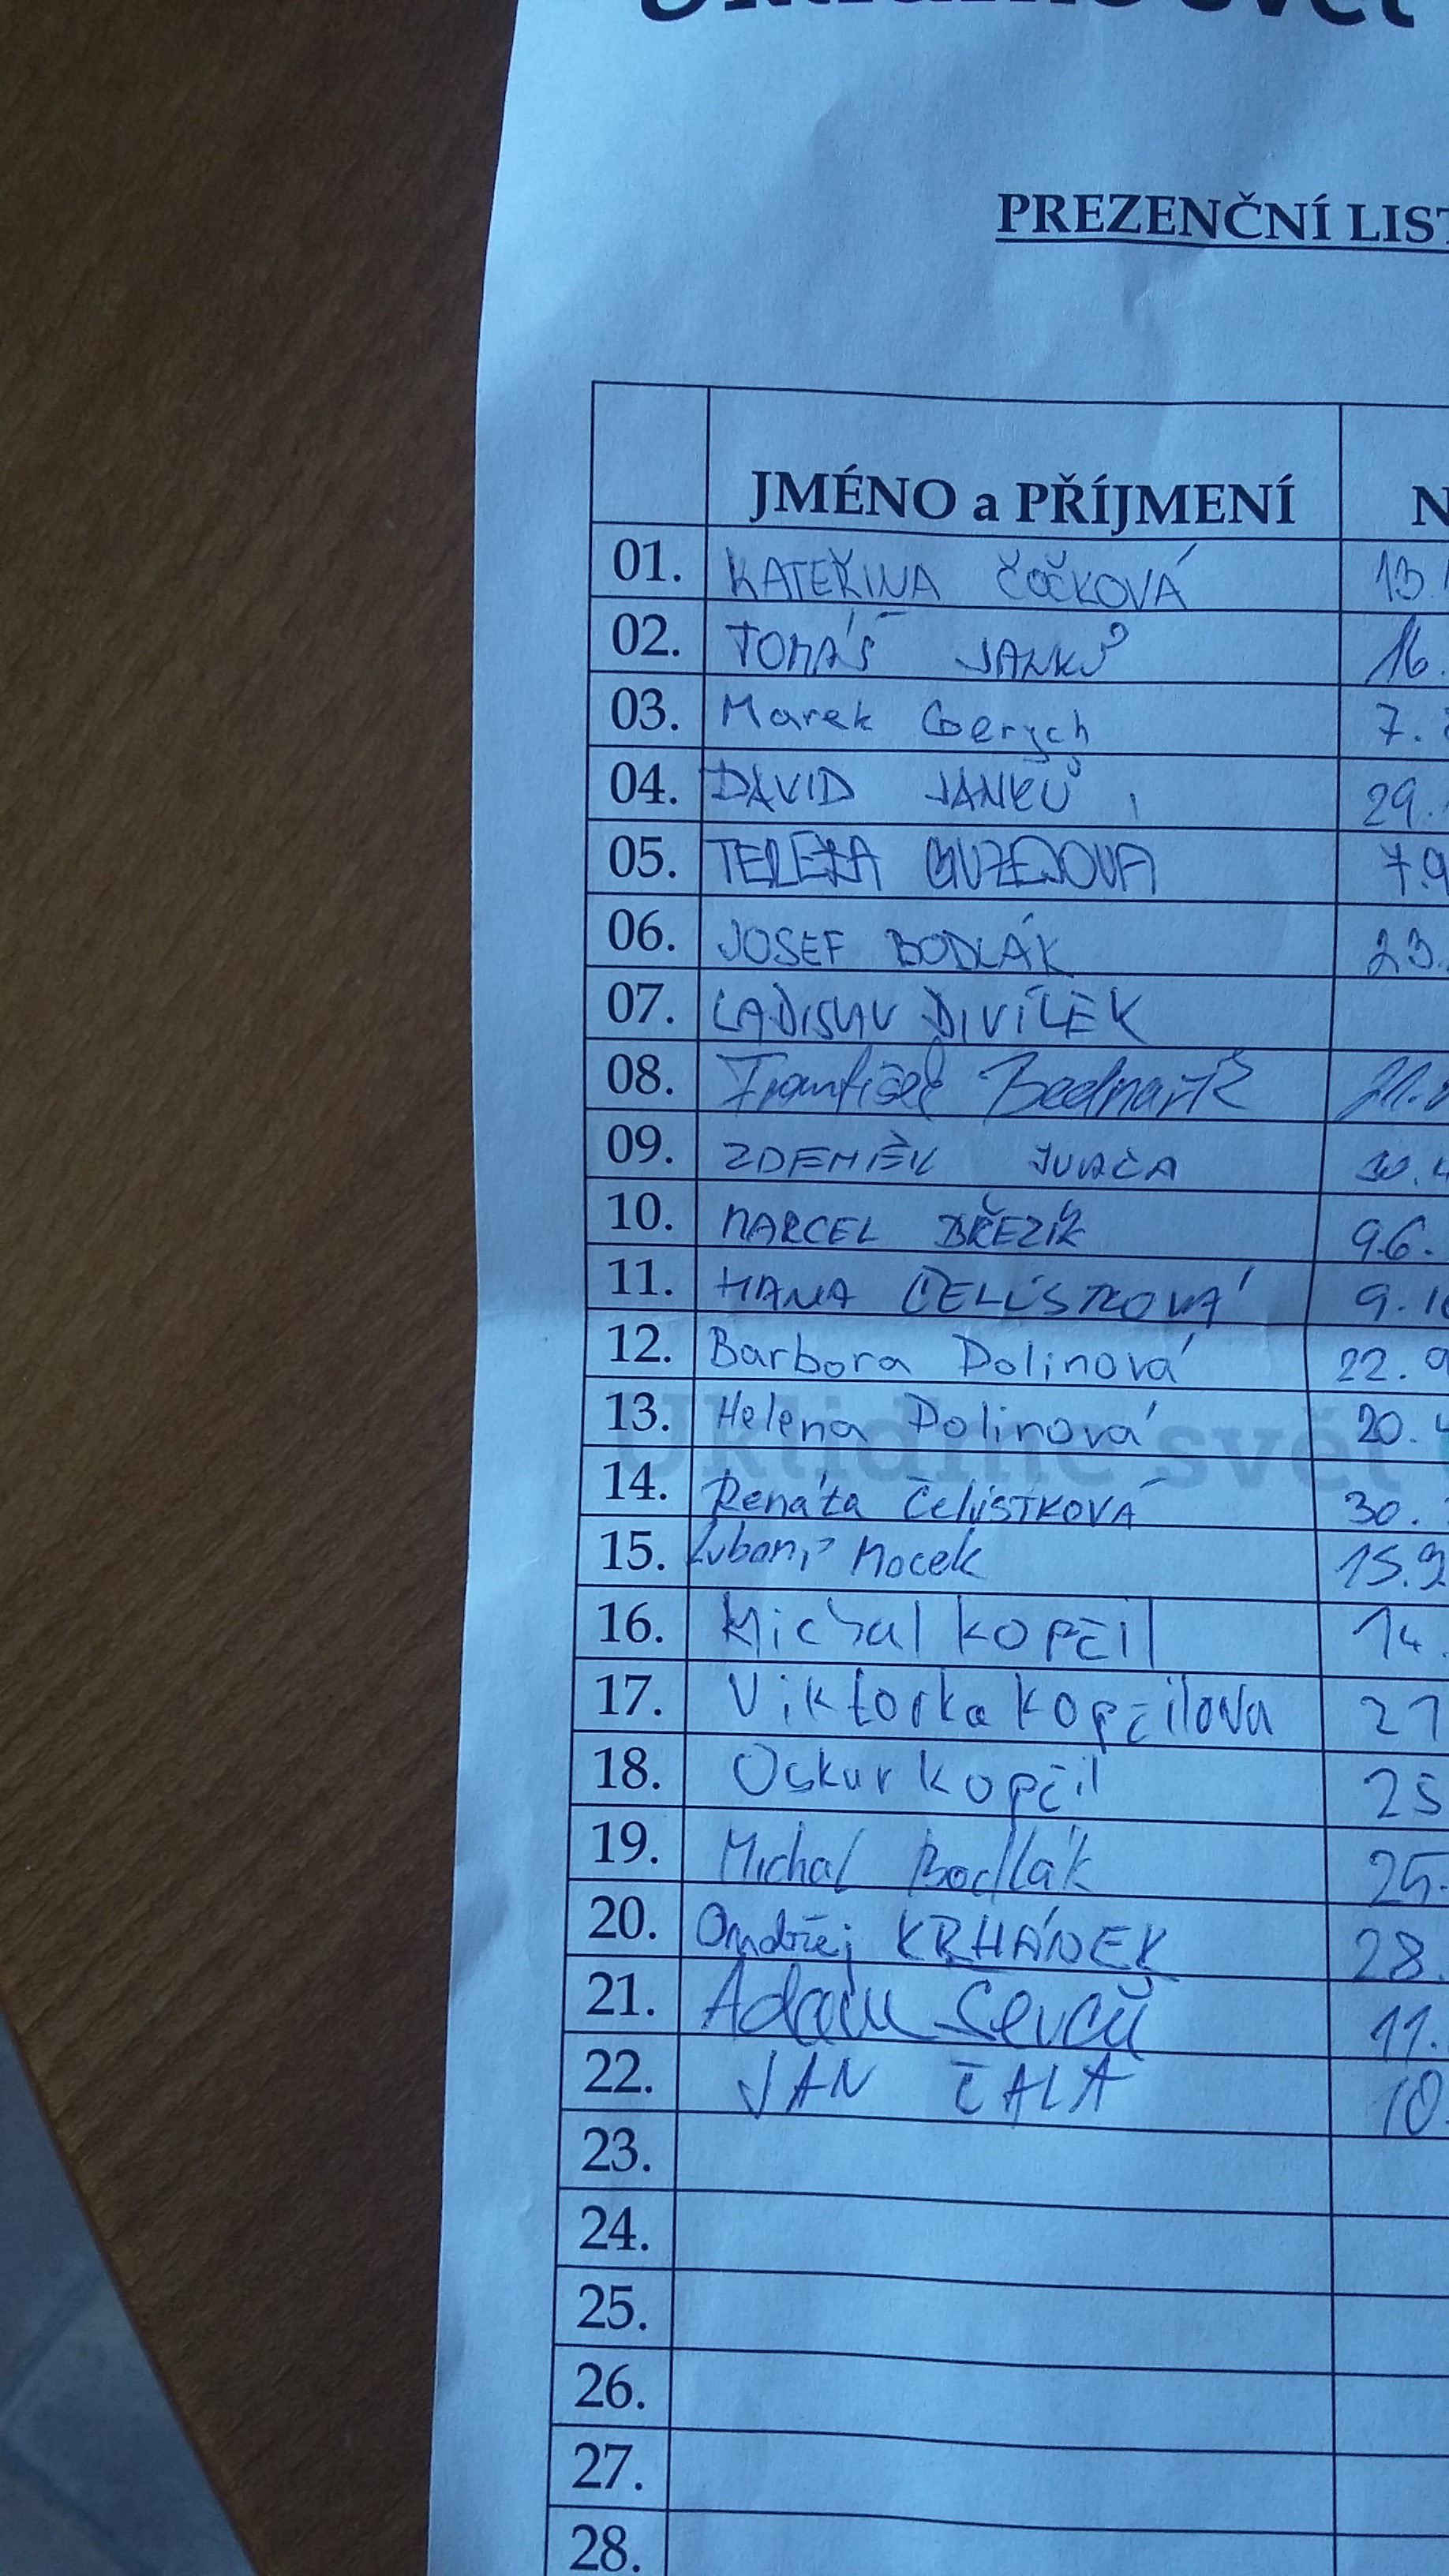 Ukliďme svět
PREZENČNÍ LIST
JMÉNO a PŘÍJMENÍ N
01. KATEŘINA ČOČKOVÁ 13.
02. TOMÁŠ JANKŮ 16.
03. Marek 7.
04. DAVID JANKŮ 29.
05. TEREZA 7.9
06. JOSEF BODLÁK 23.
07. LADISLAV DIVÍLEK
08. František Bednařík 21.
09. ZDENĚK JURČA 30.4
10. MARCEL BŘEZÍK 9.6.
11. HANA ČELŮSTKOVÁ 9.10
12. Barbora Dolinová 22.9
13. Helena Dolinová 20.4
Ukliďme svět
14. Renáta ČelůSTKOVÁ 30.
15. Lubomír Mocek 15.9
16. Michal Kopčil 14.
17. Viktorka Kopčilova 21
18. Oskar Kopčil 25
19. Michal Bodlák 25.
20. Ondřej KRHÁNEK 28.
21. Adam Ševců 11.
22. JAN ČALA 10.
23.
24.
25.
26.
27.
28.